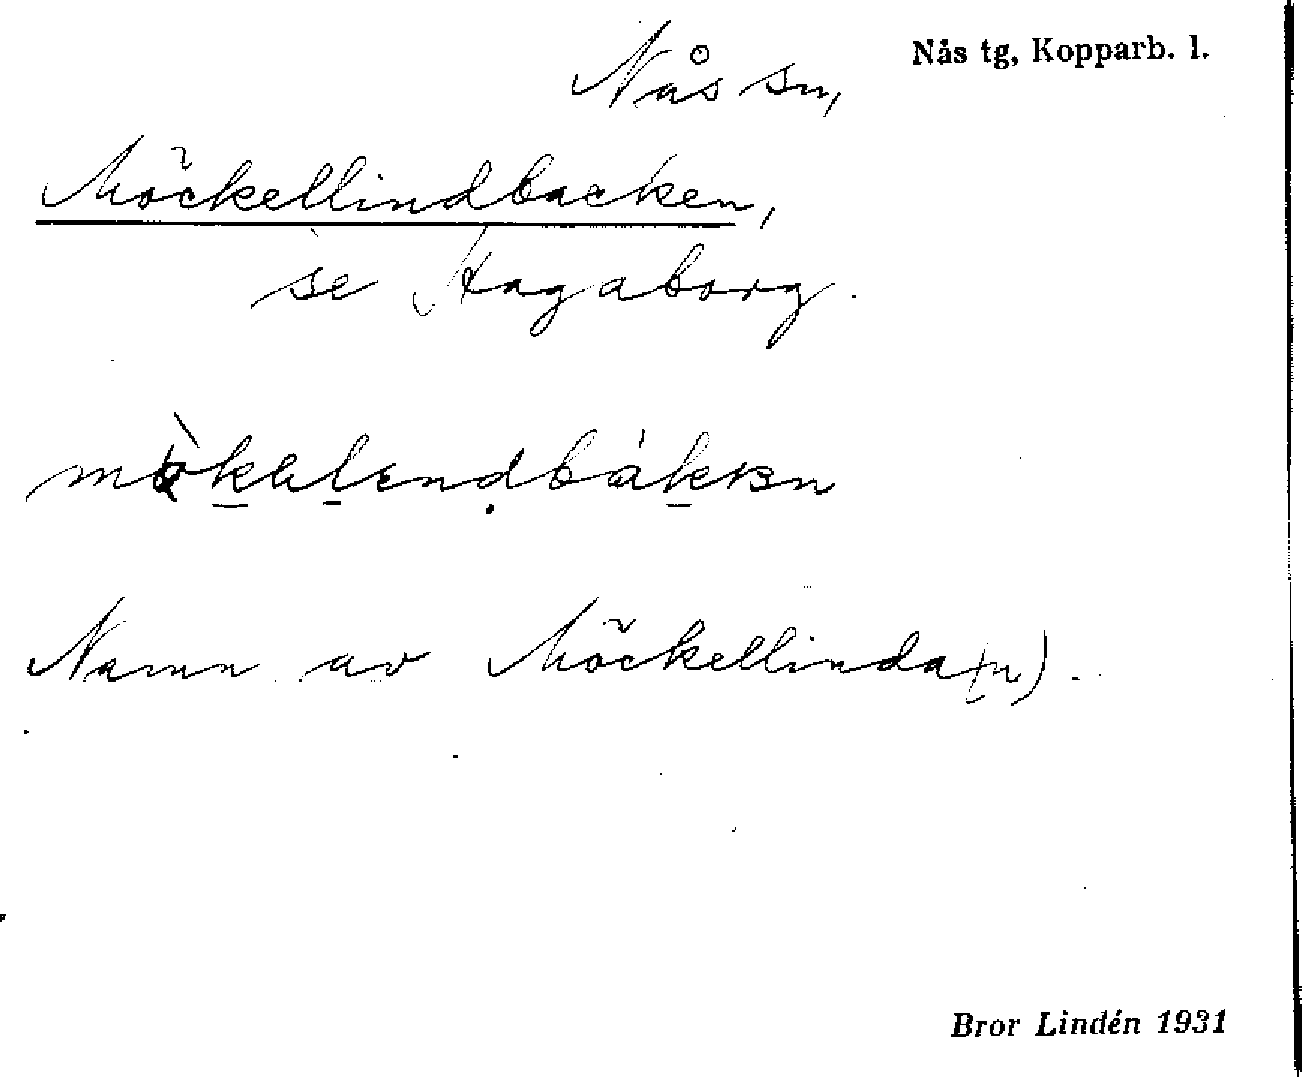 Nås tg, Kopparb. l.
Nås sn,
Möckellindbacken,
se Hagaborg.
Namn av Möckellinda(n).
Bror Lindén 1931